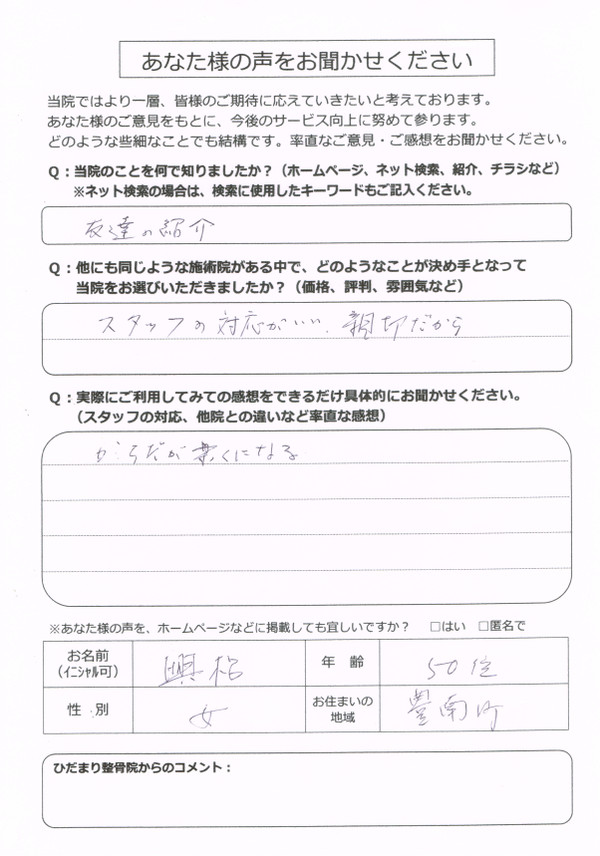 あなた様の声をお聞かせください
当院ではより一層、皆様のご期待に応えていきたいと考えております。
あなた様のご意見をもとに、今後のサービス向上に努めて参ります。
どのような些細なことでも結構です。率直なご意見・ご感想をお聞かせください。
Q：当院のことを何で知りましたか？（ホームページ、ネット検索、紹介、チラシなど）
※ネット検索の場合は、検索に使用したキーワードもご記入ください。
友達の紹介
Q：他にも同じような施術院がある中で、どのようなことが決め手となって
当院をお選びいただきましたか？（価格、評判、雰囲気など）
スタッフの対応がいい、親切だから
Q：実際にご利用してみての感想をできるだけ具体的にお聞かせください。
（スタッフの対応、他院との違いなど率直な感想）
からだが楽になる
※あなた様の声を、ホームページなどに掲載しても宜しいですか？ □はい □匿名で
お名前
（イニシャル可）
年 齢 50位
性 別 女
お住まいの
地域
豊南町
ひだまり整骨院からのコメント：